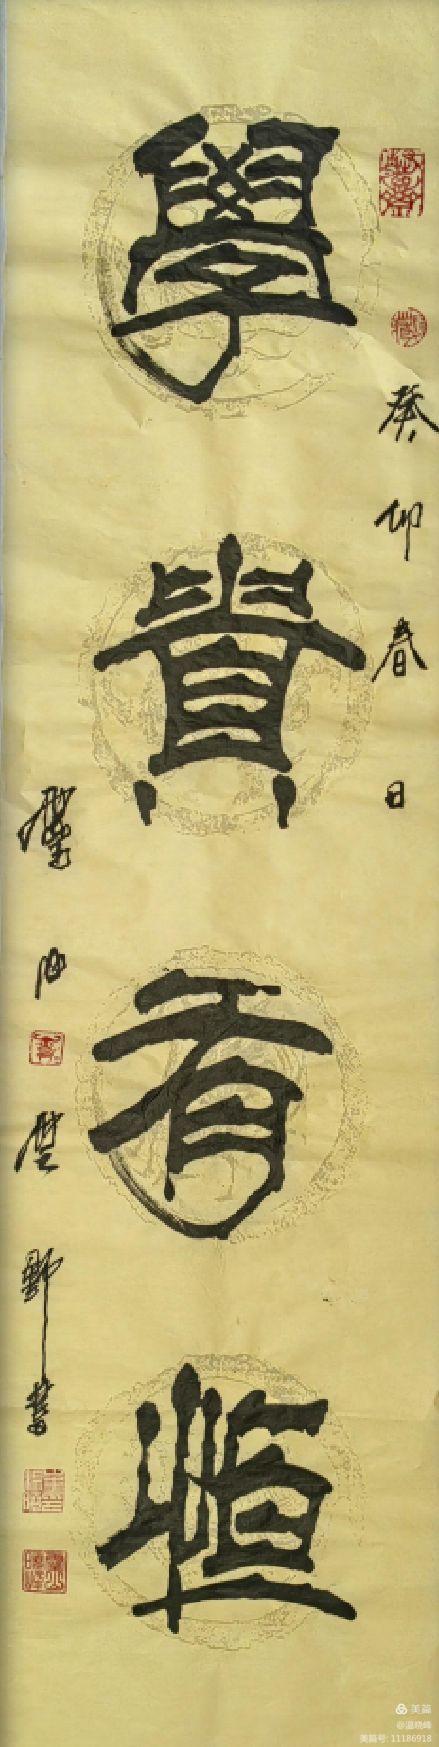 學貴有恒
癸卯春日
野書
美篇
@温晓峰
美篇号: 11186918